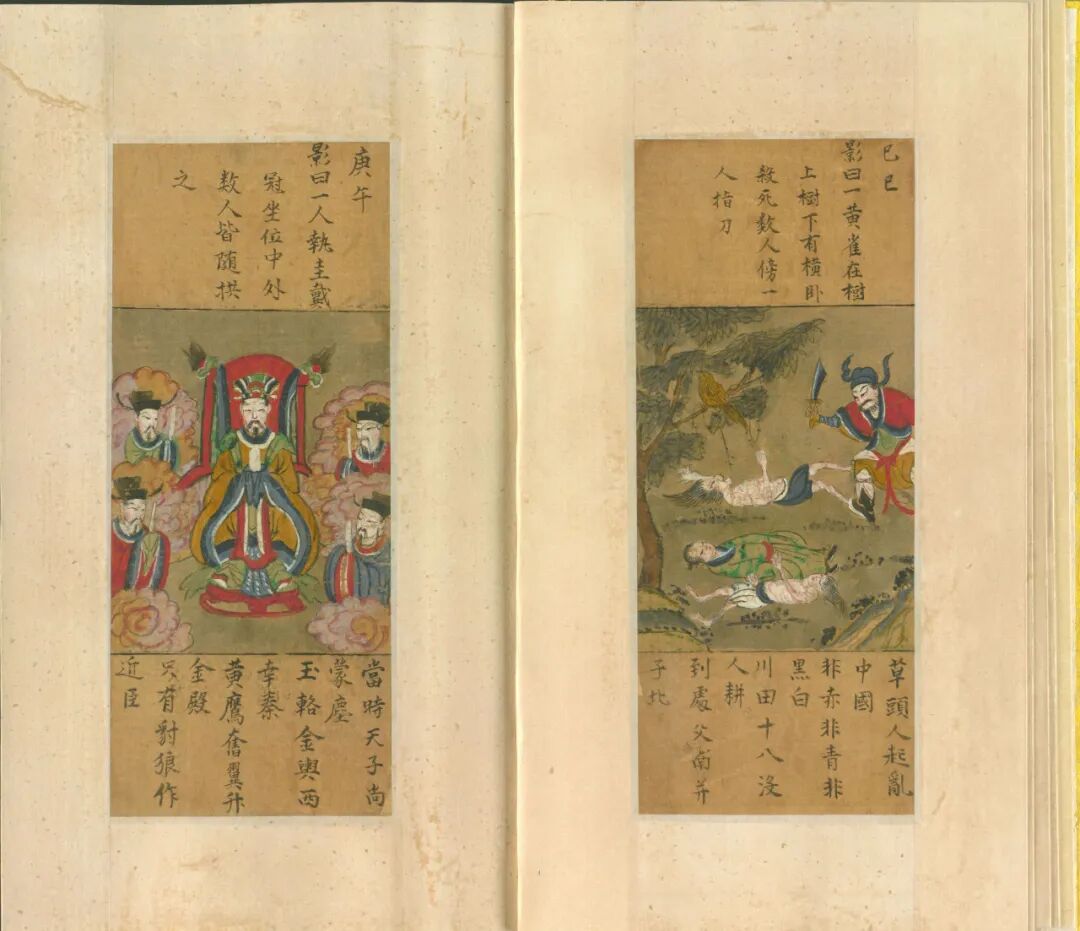 己巳
影曰一黄雀在樹
上樹下有横卧
殺死数人傍一
人指刀
草頭人起亂
中國
非赤非青非
黑白
川田十八沒
人耕
到處父南并
子北
庚午
影曰一人執圭戴
冠坐位中外
数人皆随拱
之
當時天子尚
蒙塵
玉輅金輿西
幸秦
黄鷹奮翼升
金殿
只有豺狼作
近臣